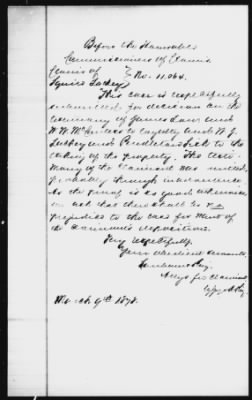 Before the Honorable
Commissioners of Claims
Claim of
Squire Lackey } No. 11.064.
This case is respectfully
submitted for decision on the
testimony of James Law and
W. W. to loyalty and W. J.
Lackey and to the
taking of the property. The testi-
mony of the Claimant was
through
the proof is so good
ask that there shall be no
prejudice to the case for want of
the claimant's deposition.
Very respectfully,
Your obedient servants,
Attys for Claimant
March 9th 1878.